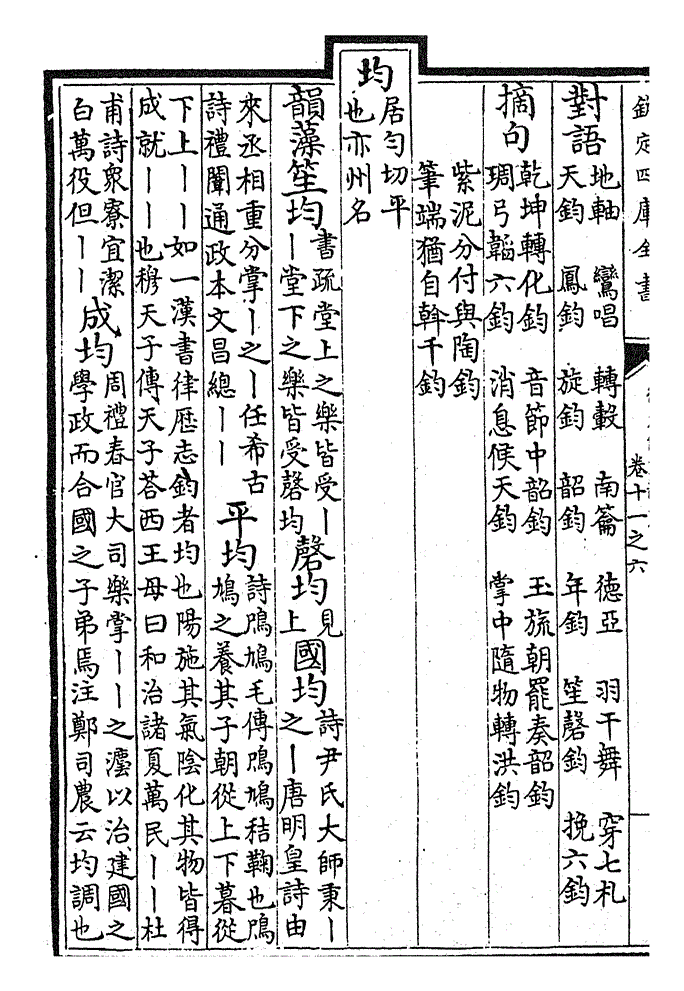 欽定四庫全書 卷十一之六
對語 地軸天鈞 鸞唱鳳鈞 轉轂旋鈞 南籥韶鈞 德亞年鈞 羽干舞笙磬鈞 穿七札挽六鈞
摘句 乾坤轉化鈞琱弓韜六鈞 音節中韶鈞消息候天鈞 玉旒朝罷奏韶鈞掌中隨物轉洪鈞
紫泥分付與陶鈞筆端猶自斡千鈞
均 居勻切平也亦州名
韻藻笙均 書疏堂上之樂皆受丨丨堂下之樂皆受磬均 磬均 見上 國均 詩尹氏大師秉丨之丨唐明皇詩由
來丞相重分掌丨之丨任希古詩禮闈通政本文昌總丨丨 平均 詩鳲鳩毛傳鳲鳩秸鞠也鳲鳩之養其子朝從上下暮從
下上丨丨如一漢書律歷志鈞者均也陽施其氣陰化其物皆得成就丨丨也穆天子傳天子荅西王母曰和治諸夏萬民丨丨杜
甫詩衆寮宜潔白萬役但丨丨 成均 周禮春官大司樂掌丨丨之灋以治建國之學政而合國之子弟焉注鄭司農云均調也